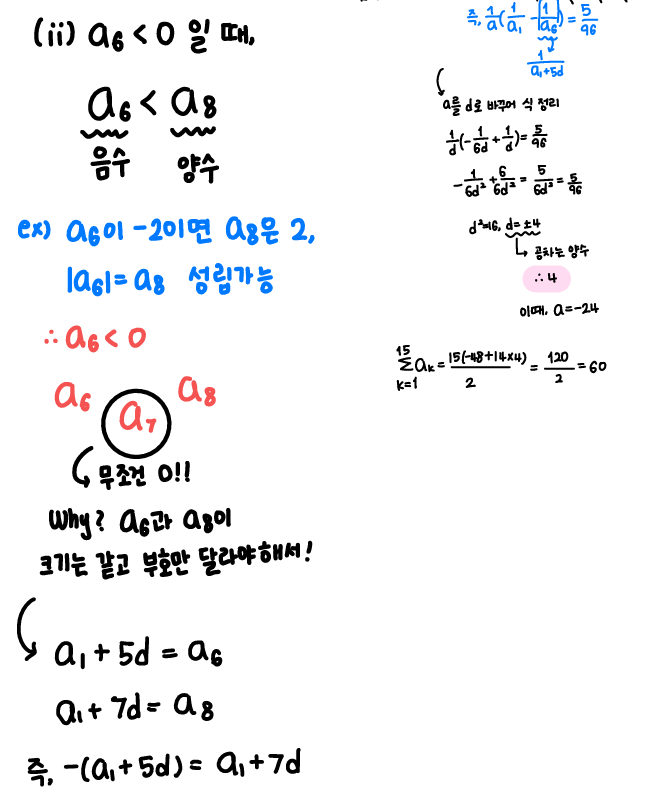 (ii) a₆ < 0 일 때,
a₆ < a₈
음수 양수
ex) a₆이 -2이면 a₈은 2,
|a₆| = a₈ 성립가능
∴ a₆ < 0
a₆ a₇ a₈
무조건 0!!
Why? a₆과 a₈이
크기는 같고 부호만 달라야해서!
a₁ + 5d = a₆
a₁ + 7d = a₈
즉, -(a₁ + 5d) = a₁ + 7d
즉, 1/a (1/a₁ - |1/a₆|) = 5/96
1/(a₁+5d)
a를 d로 바꾸어 식 정리
1/d (-1/6d + 1/d) = 5/96
-1/6d² + 6/6d² = 5/6d² = 5/96
d²=16, d=±4
공차는 양수
∴ 4
이때, a=-24
15
Σ aₖ = 15(-48+14×4)/2 = 120/2 = 60
k=1